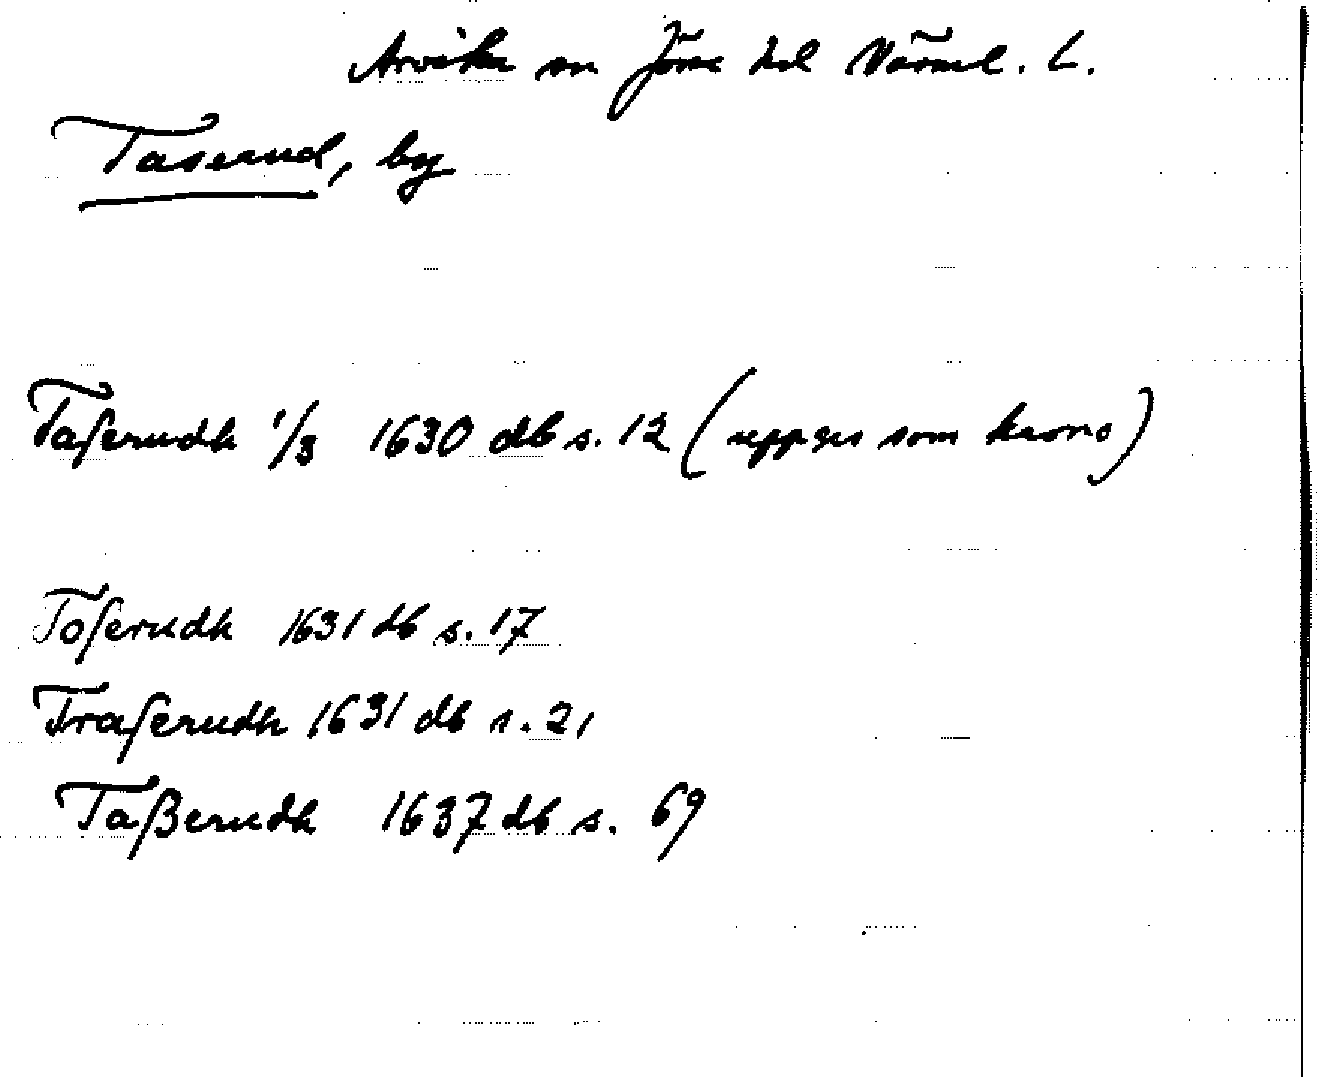 Arvika sn Jösse hd Värml. L.
Taserud, by
Taserudh 1/3 1630 db s. 12 (uppges som krono)
Toserudh 1631 db s. 17
Traserudh 1631 db s. 21
Taßerudh 1637 db s. 69